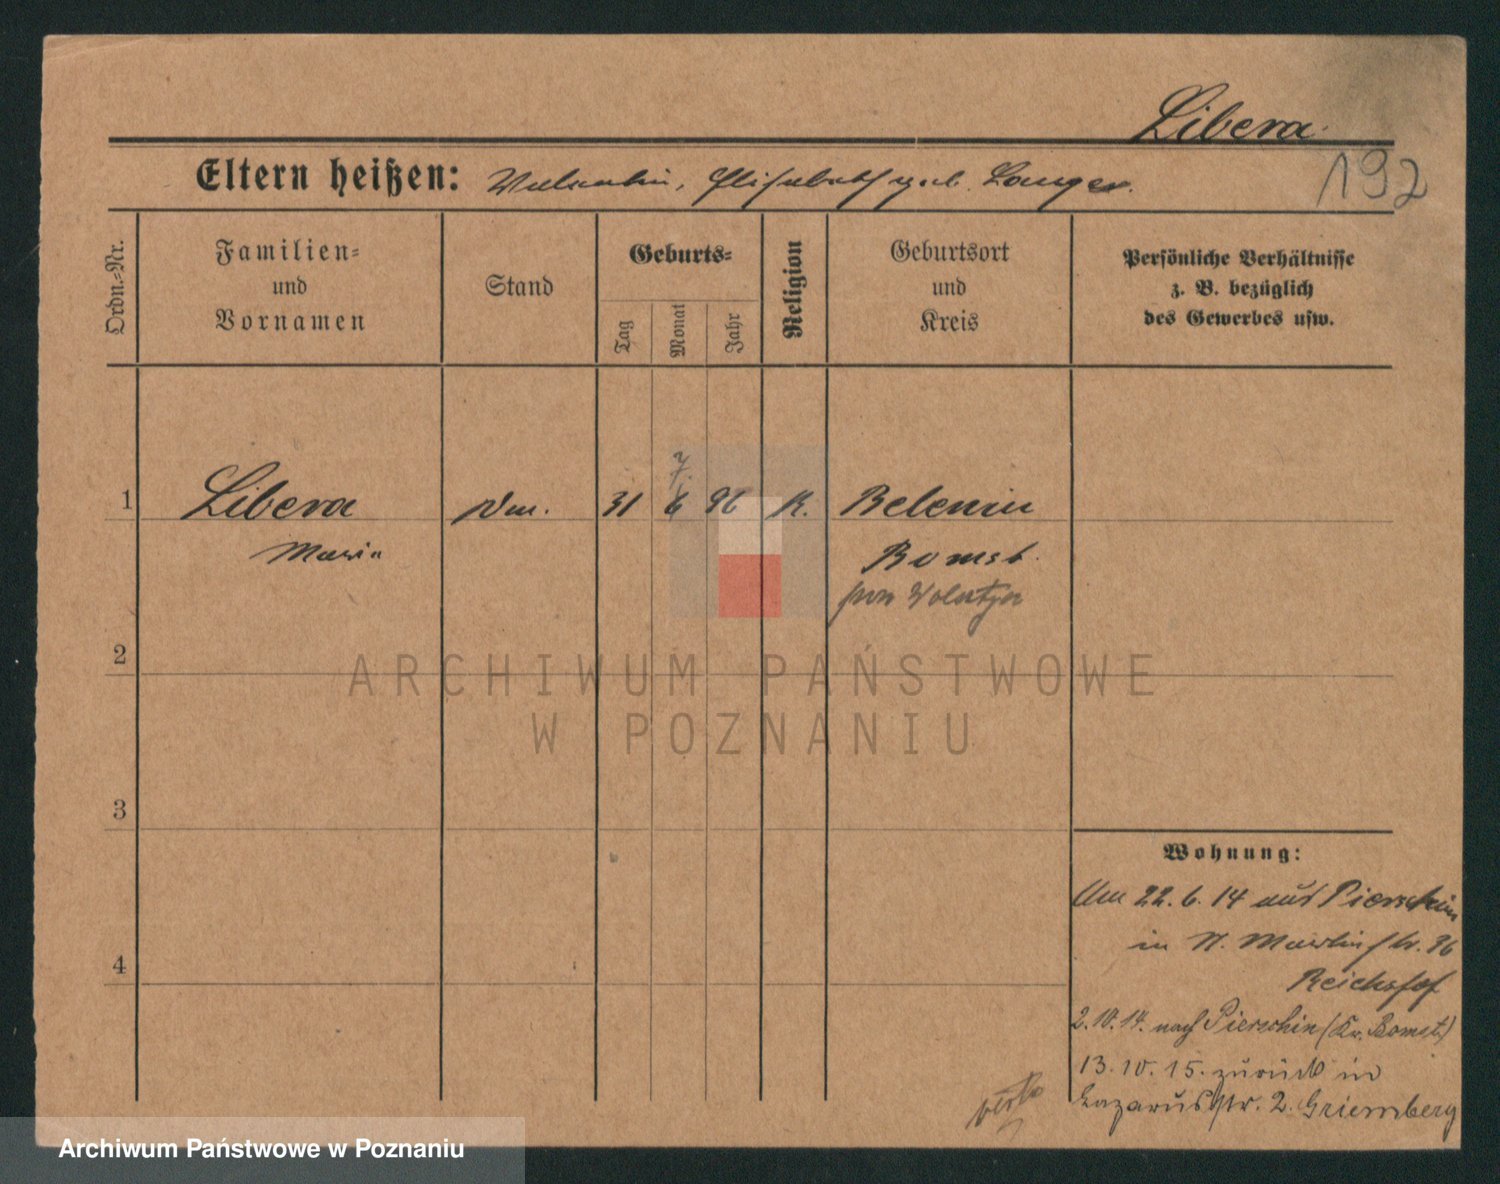 Libera
192
Eltern heißen: Valentin, Elisabeth geb. Langer.
Ordn.=Nr.
Familien=
und
Vornamen
Stand
Geburts=
Tag
Monat
Jahr
Religion
Geburtsort
und
Kreis
Persönliche Verhältnisse
z. B. bezüglich
des Gewerbes usw.
7.
1 Libera 31 6 96 K. Belencin
Maria Bomst
2
ARCHIWUM PAŃSTWOWE
W POZNANIU
3
4
Wohnung:
Am 22. 6. 14 aus Pierschin
in St. Martinstr. 36
Reichshof
2.10.14. nach Pierschin (Kr. Bomst)
13. 10. 15. zurück in
Lazarusstr. 2. Griemberg
verte
Archiwum Państwowe w Poznaniu